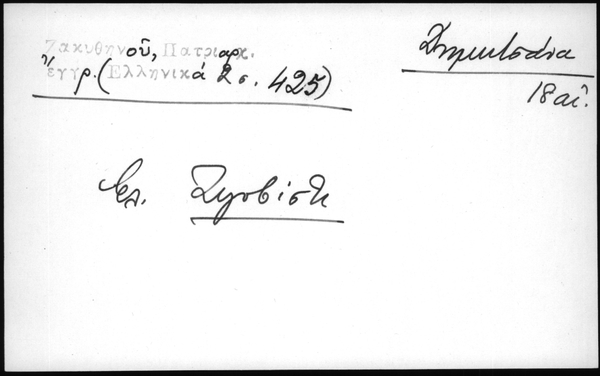 Ζακυθηνοῦ, Πατριαρχ.
ἔγγρ. (Ἑλληνικά 2 σ. 425)
Δημητσάνα
18 αἰ.
βλ. Ζυγοβίστι